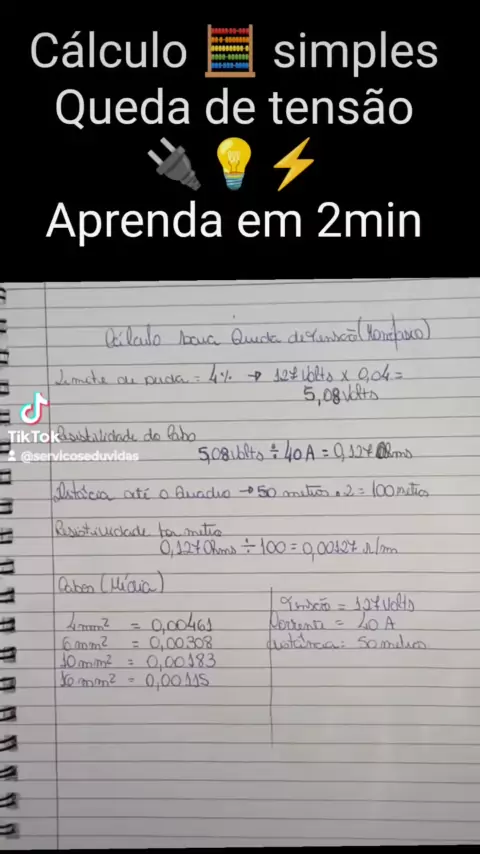 Cálculo 🧮 simples
Queda de tensão
🔌💡⚡
Aprenda em 2min
Cálculo para Queda de tensão (Monofásico)
Limite de queda = 4% → 127 Volts x 0,04 =
5,08 Volts
TikTok
@servicoseduvidas
Resistividade do Cabo
5,08 Volts ÷ 40 A = 0,127 Ohms
Distância até o Quadro → 50 metros . 2 = 100 metros
Resistividade por metro
0,127 Ohms ÷ 100 = 0,00127 r/m
Cabos (Média)
4mm² = 0,00461
6mm² = 0,00308
10mm² = 0,00183
16mm² = 0,00115
Tensão = 127 Volts
Corrente = 40 A
distância: 50 metros